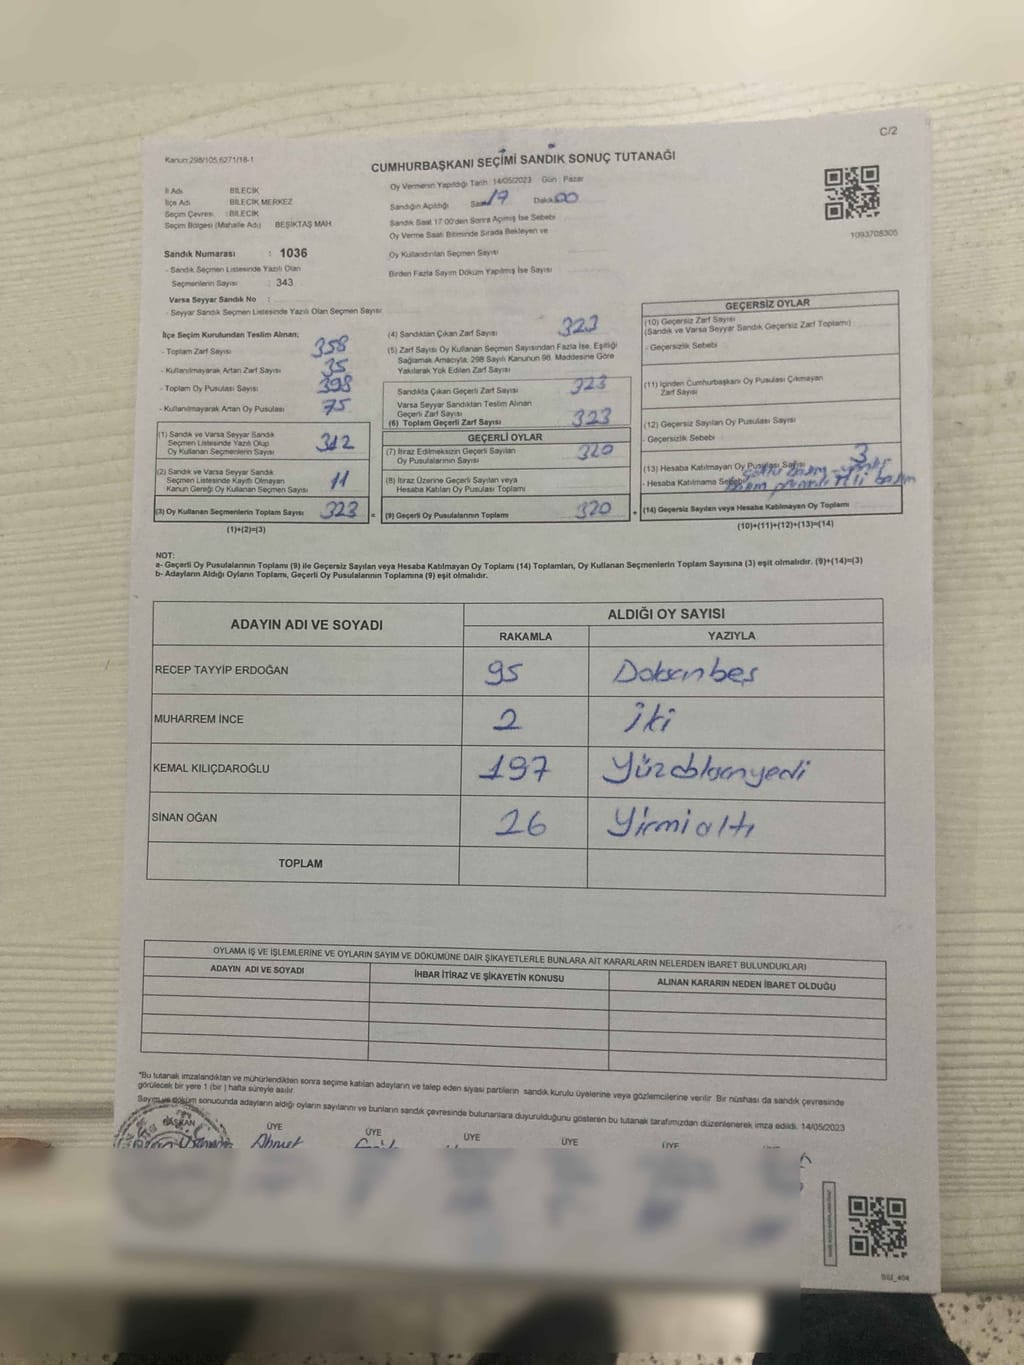 C/2
Kanun:298/105,6271/18-1
CUMHURBAŞKANI SEÇİMİ SANDIK SONUÇ TUTANAĞI
İl Adı BİLECİK
İlçe Adı BİLECİK MERKEZ
Seçim Çevresi : BİLECİK
Seçim Bölgesi (Mahalle Adı) BEŞİKTAŞ MAH
Oy Vermenin Yapıldığı Tarih 14/05/2023 Gün : Pazar
Sandığın Açıldığı Saat 17 Dakika 00
Sandık Saat 17:00'den Sonra Açılmış İse Sebebi
Oy Verme Saati Bitiminde Sırada Bekleyen ve
Oy Kullandırılan Seçmen Sayısı
Birden Fazla Sayım Döküm Yapılmış İse Sayısı
1093708305
Sandık Numarası : 1036
- Sandık Seçmen Listesinde Yazılı Olan
Seçmenlerin Sayısı : 343
Varsa Seyyar Sandık No :
- Seyyar Sandık Seçmen Listesinde Yazılı Olan Seçmen Sayısı
İlçe Seçim Kurulundan Teslim Alınan;
- Toplam Zarf Sayısı 358
- Kullanılmayarak Artan Zarf Sayısı 35
- Toplam Oy Pusulası Sayısı 398
- Kullanılmayarak Artan Oy Pusulası 75
(1) Sandık ve Varsa Seyyar Sandık
Seçmen Listesinde Yazılı Olup
Oy Kullanan Seçmenlerin Sayısı 312
(2) Sandık ve Varsa Seyyar Sandık
Seçmen Listesinde Kayıtlı Olmayan
Kanun Gereği Oy Kullanan Seçmen Sayısı 11
(3) Oy Kullanan Seçmenlerin Toplam Sayısı 323 =
(1)+(2)=(3)
(4) Sandıktan Çıkan Zarf Sayısı 323
(5) Zarf Sayısı Oy Kullanan Seçmen Sayısından Fazla İse, Eşitliği
Sağlamak Amacıyla, 298 Sayılı Kanunun 98. Maddesine Göre
Yakılarak Yok Edilen Zarf Sayısı
Sandıkta Çıkan Geçerli Zarf Sayısı 323
Varsa Seyyar Sandıktan Teslim Alınan
Geçerli Zarf Sayısı
(6) Toplam Geçerli Zarf Sayısı 323
GEÇERLİ OYLAR
(7) İtiraz Edilmeksizin Geçerli Sayılan
Oy Pusulalarının Sayısı 320
(8) İtiraz Üzerine Geçerli Sayılan veya
Hesaba Katılan Oy Pusulası Toplamı
(9) Geçerli Oy Pusulalarının Toplamı 320 +
GEÇERSİZ OYLAR
(10) Geçersiz Zarf Sayısı
(Sandık ve Varsa Seyyar Sandık Geçersiz Zarf Toplamı)
- Geçersizlik Sebebi
(11) İçinden Cumhurbaşkanı Oy Pusulası Çıkmayan
Zarf Sayısı
(12) Geçersiz Sayılan Oy Pusulası Sayısı
- Geçersizlik Sebebi
(13) Hesaba Katılmayan Oy Pusulası Sayısı 3
- Hesaba Katılmama Sebebi
(14) Geçersiz Sayılan veya Hesaba Katılmayan Oy Toplamı
(10)+(11)+(12)+(13)=(14)
NOT:
a- Geçerli Oy Pusulalarının Toplamı (9) ile Geçersiz Sayılan veya Hesaba Katılmayan Oy Toplamı (14) Toplamları, Oy Kullanan Seçmenlerin Toplam Sayısına (3) eşit olmalıdır. (9)+(14)=(3)
b- Adayların Aldığı Oyların Toplamı, Geçerli Oy Pusulalarının Toplamına (9) eşit olmalıdır.
ADAYIN ADI VE SOYADI ALDIĞI OY SAYISI
RAKAMLA YAZIYLA
RECEP TAYYİP ERDOĞAN 95 Doksanbeş
MUHARREM İNCE 2 İki
KEMAL KILIÇDAROĞLU 197 Yüzdoksanyedi
SİNAN OĞAN 26 Yirmialtı
TOPLAM
OYLAMA İŞ VE İŞLEMLERİNE VE OYLARIN SAYIM VE DÖKÜMÜNE DAİR ŞİKAYETLERLE BUNLARA AİT KARARLARIN NELERDEN İBARET BULUNDUKLARI
ADAYIN ADI VE SOYADI İHBAR İTİRAZ VE ŞİKAYETİN KONUSU ALINAN KARARIN NEDEN İBARET OLDUĞU
*Bu tutanak imzalandıktan ve mühürlendikten sonra seçime katılan adayların ve talep eden siyasi partilerin sandık kurulu üyelerine veya gözlemcilerine verilir. Bir nüshası da sandık çevresinde
görülecek bir yere 1 (bir ) hafta süreyle asılır.
Sayım ve döküm sonucunda adayların aldığı oyların sayılarını ve bunların sandık çevresinde bulunanlara duyurulduğunu gösteren bu tutanak tarafımızdan düzenlenerek imza edildi. 14/05/2023
BAŞKAN ÜYE ÜYE ÜYE ÜYE ÜYE
Ahmet